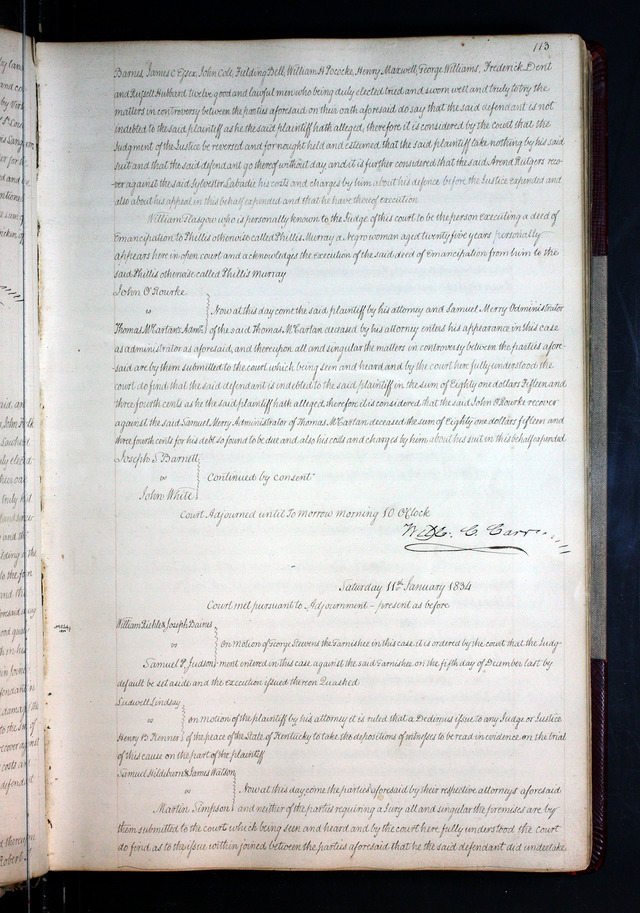 113
Barnes, James C Essex, John Cole, Fielding Bell, William H Pococke, Henry Maxwell, George Williams, Frederick Dent
and Russell Hubbard twelve good and lawful men who being duly elected tried and sworn well and truly to try the
matters in controversy between the parties aforesaid on their oath aforesaid do say that the said defendant is not
indebted to the said plaintiff as he the said plaintiff hath alleged, therefore it is considered by the Court that the
Judgment of the Justice be reversed and for nought held and esteemed that the said plaintiff take nothing by his said
suit and that the said defendant go thereof without day, and it is further considered that the said Arend Rutgers reco-
-ver against the said Sylvester Labadie his costs and charges by him about his defence before the Justice expended and
also about his appeal in this behalf expended and that he have thereof execution
William Glasgow who is personally known to the Judge of this court to be the person executing a deed of
Emancipation to Phillis otherwise called Phillis Murray a Negro woman aged twenty five years personally
appears here in open court and acknowledges the execution of the said deed of Emancipation from him to the
said Phillis otherwise called Phillis Murray
John O'Rourke
vs
Now at this day come the said plaintiff by his attorney and Samuel Merry Administrator
Thomas McCartan's Admr. of the said Thomas McCartan deceased by his attorney enters his appearance in this case
as administrator as aforesaid, and thereupon all and singular the matters in controversy between the parties afore-
said are by them submitted to the court which being seen and heard and by the court here fully understood the
court do find that the said defendant is indebted to the said plaintiff in the sum of Eighty one dollars Fifteen and
three fourth cents as he the said plaintiff hath alleged, therefore it is considered that the said John O'Rourke recover
against the said Samuel Merry Administrator of Thomas McCartan deceased the sum of Eighty one dollars fifteen and
three fourth cents for his debt so found to be due and also his costs and charges by him about his suit in this behalf expended
Joseph S. Barnett
vs
Continued by consent
John White
Court Adjourned until To morrow morning 10 O'Clock
Wm. C. Carr
Saturday 11th January 1834
Court met pursuant to Adjournment - present as before
William Preble & Joseph Barnes
vs
on motion of George Stevens the Garnishee in this case it is ordered by the court that the Judg-
Samuel P. Judson ment entered in this case against the said Garnishee on the fifth day of December last by
default be set aside and the execution issued thereon Quashed
Ludwell Lindsay
vs
on motion of the plaintiff by his attorney it is ruled that a Dedimus issue to any Judge or Justice
Henry B Renner of the peace of the State of Kentucky to take the depositions of witnesses to be read in evidence on the trial
of this cause on the part of the plaintiff
Samuel Hildeburn & James Watson
vs
Now at this day come the parties aforesaid by their respective attorneys aforesaid
Martin Simpson and neither of the parties requiring a Jury all and singular the premises are by
them submitted to the court which being seen and heard and by the court here fully understood the court
do find as to the issue within joined between the parties aforesaid that he the said defendant did undertake